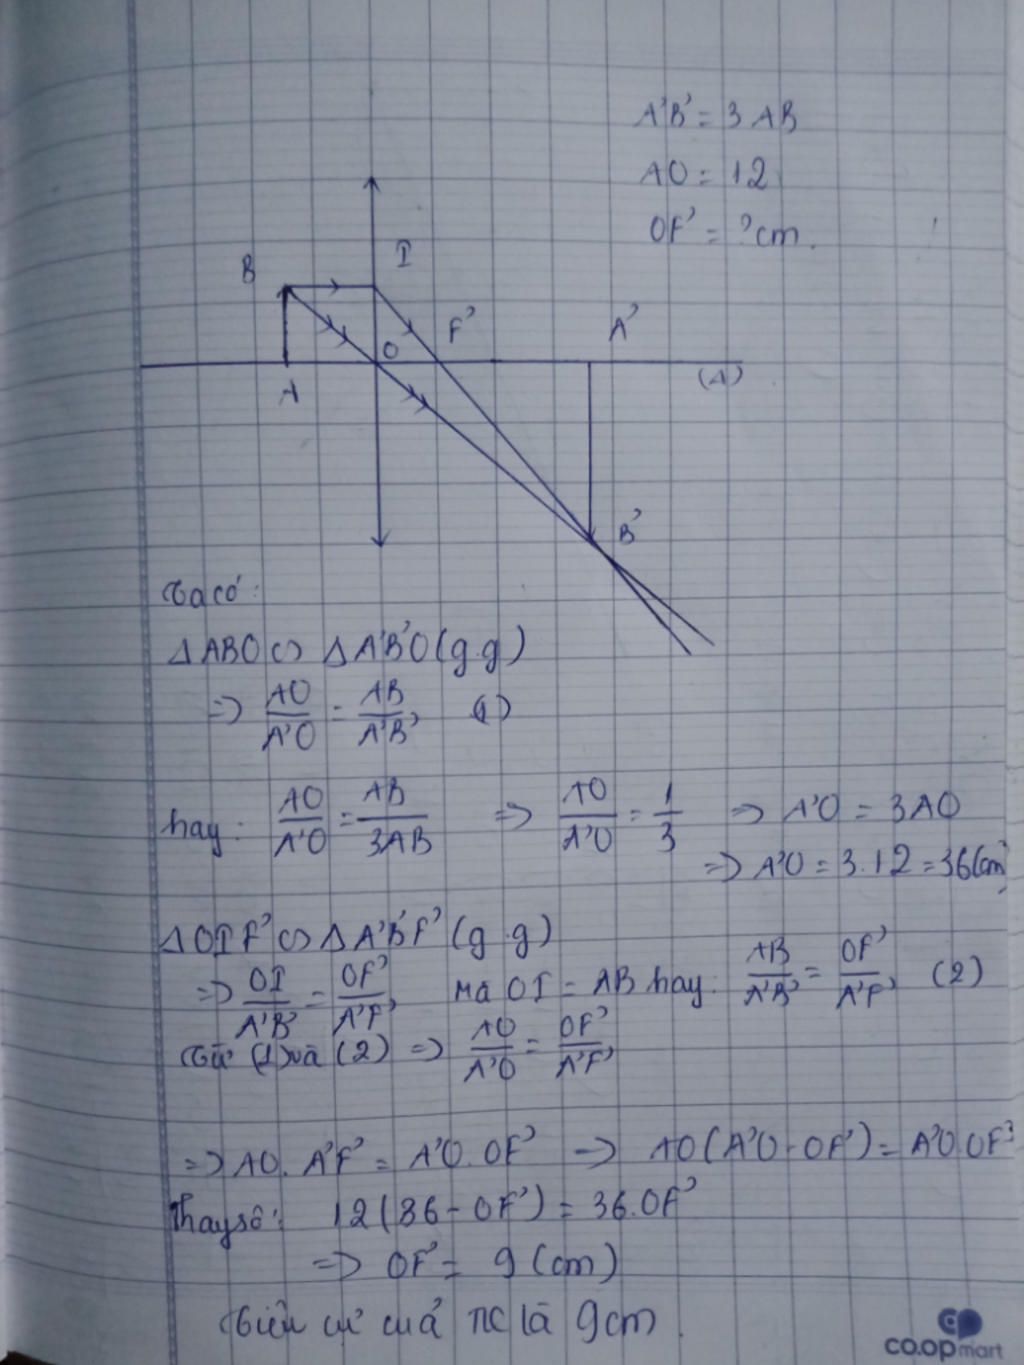 A'B' = 3 AB
AO = 12
OF' = ? cm.
I
B
F'
A'
O
A
(Δ)
B'
Ta có:
Δ ABO ∽ Δ A'B'O (g.g)
=> AO/A'O = AB/A'B' (1)
hay: AO/A'O = AB/3AB => AO/A'O = 1/3 => A'O = 3AO
=> A'O = 3.12 = 36(cm)
Δ OIF' ∽ Δ A'B'F' (g.g)
=> OI/A'B' = OF'/A'F' Mà OI = AB hay: AB/A'B' = OF'/A'F' (2)
Từ (1) và (2) => AO/A'O = OF'/A'F'
=> AO. A'F' = A'O. OF' => AO(A'O - OF') = A'O.OF'
Thay số: 12(36 - OF') = 36.OF'
=> OF' = 9 (cm)
Tiêu cự của TK là 9cm.
co.opmart